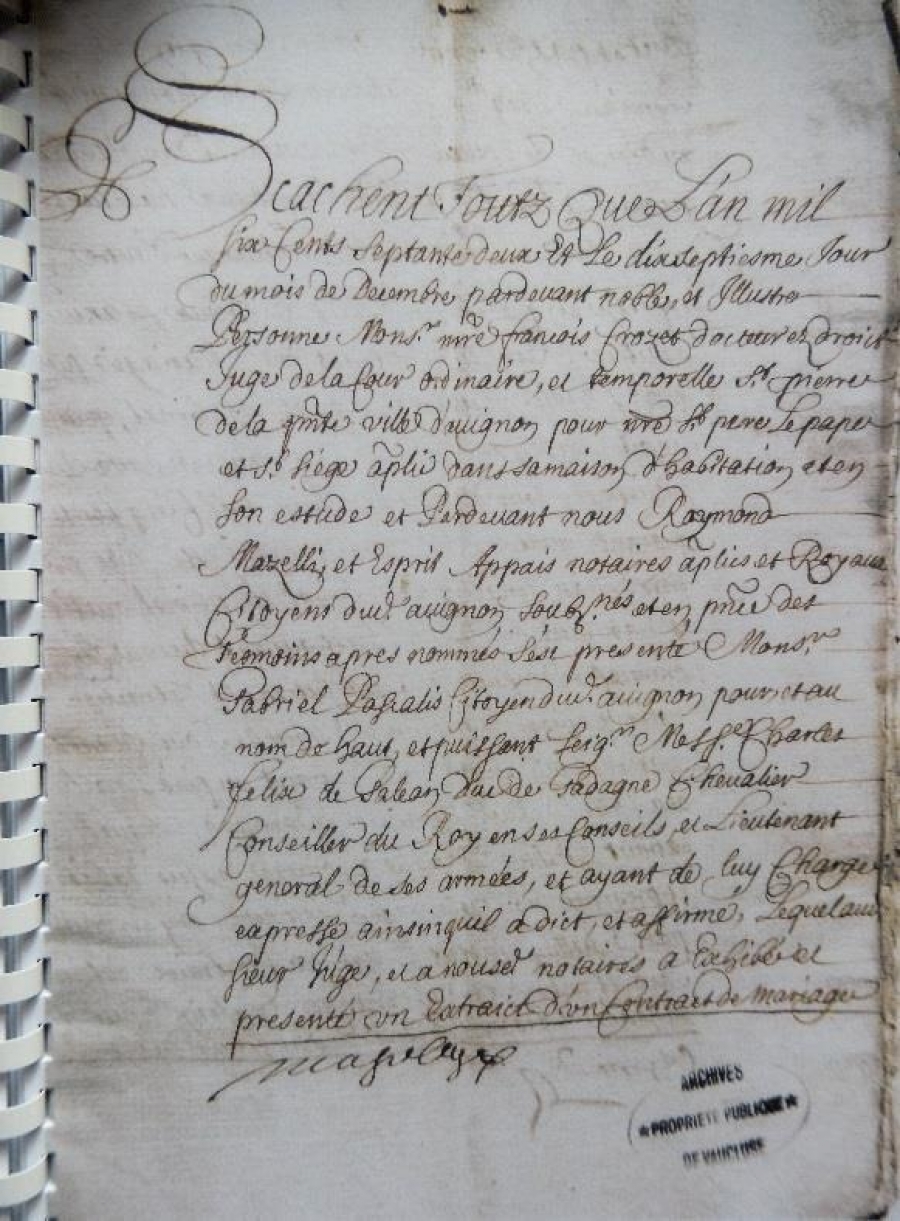 Scachent Toutz Que L'an mil
six Cents septante deux Et Le dixseptiesme Jour
du mois de Decembre pardevant noble, et Illustre
Personne Mons.r mre francois Crozet docteur ez droictz
Juge de la Cour ordinaire, et temporelle S.t pierre
de la pnte ville d'avignon pour nre S.t pere Le pape
et S.t siege apliq dans sa maison d'habitation et en
son estude et Perdevant nous Raymond
Mazelli, et Esprit Appais notaires aplics et Royaux
Citoyens dud.t avignon soubz.nés et en pnce des
Tesmoins apres nommés s'est presenté Mons.r
Gabriel Pascalis Citoyen dud.t avignon pour, et au
nom de haut, et puissant seig.r Mess.e Charles
felix de Galean duc de Gadagne Chevalier
Conseiller du Roy en ses Conseils, et Lieutenant
general de ses armées, et ayant de luy Charge
expresse ainsin quil a dict, et affirmé, Lequel aud
sieur Juge, et a nousd notaires a Exhibé et
presenté un Extraict d'un Contract de mariage
ARCHIVES
★ PROPRIETE PUBLIQUE ★
DE VAUCLUSE